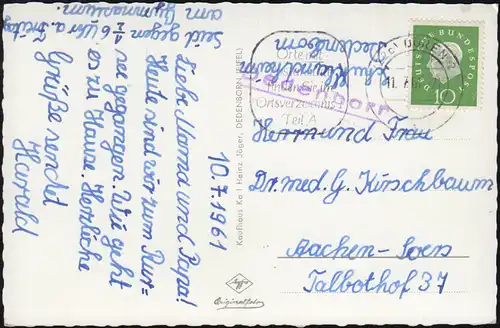 Seid gegen ½ 6 Uhr a. Freitag
am Gymnasium.
10.7.1961
Liebe Mama und Papa!
Heute sind wir zum Rur=
see gegangen. Wie geht
es zu Hause. Herzliche
Grüße sendet
Harald
Kaufhaus Karl Heinz Jäger, DEDENBORN (EIFEL)
Agfa
Originalfoto
Schullandheim
Dedenborn
Orte mit
finden Sie im
Ortsverzeichnis
Teil A
DÜREN
11.7.61
DEUTSCHE BUNDESPOST
10
Herrn und Frau
Dr. med. G. Kirschbaum
Aachen-Soers
Talbothof 37